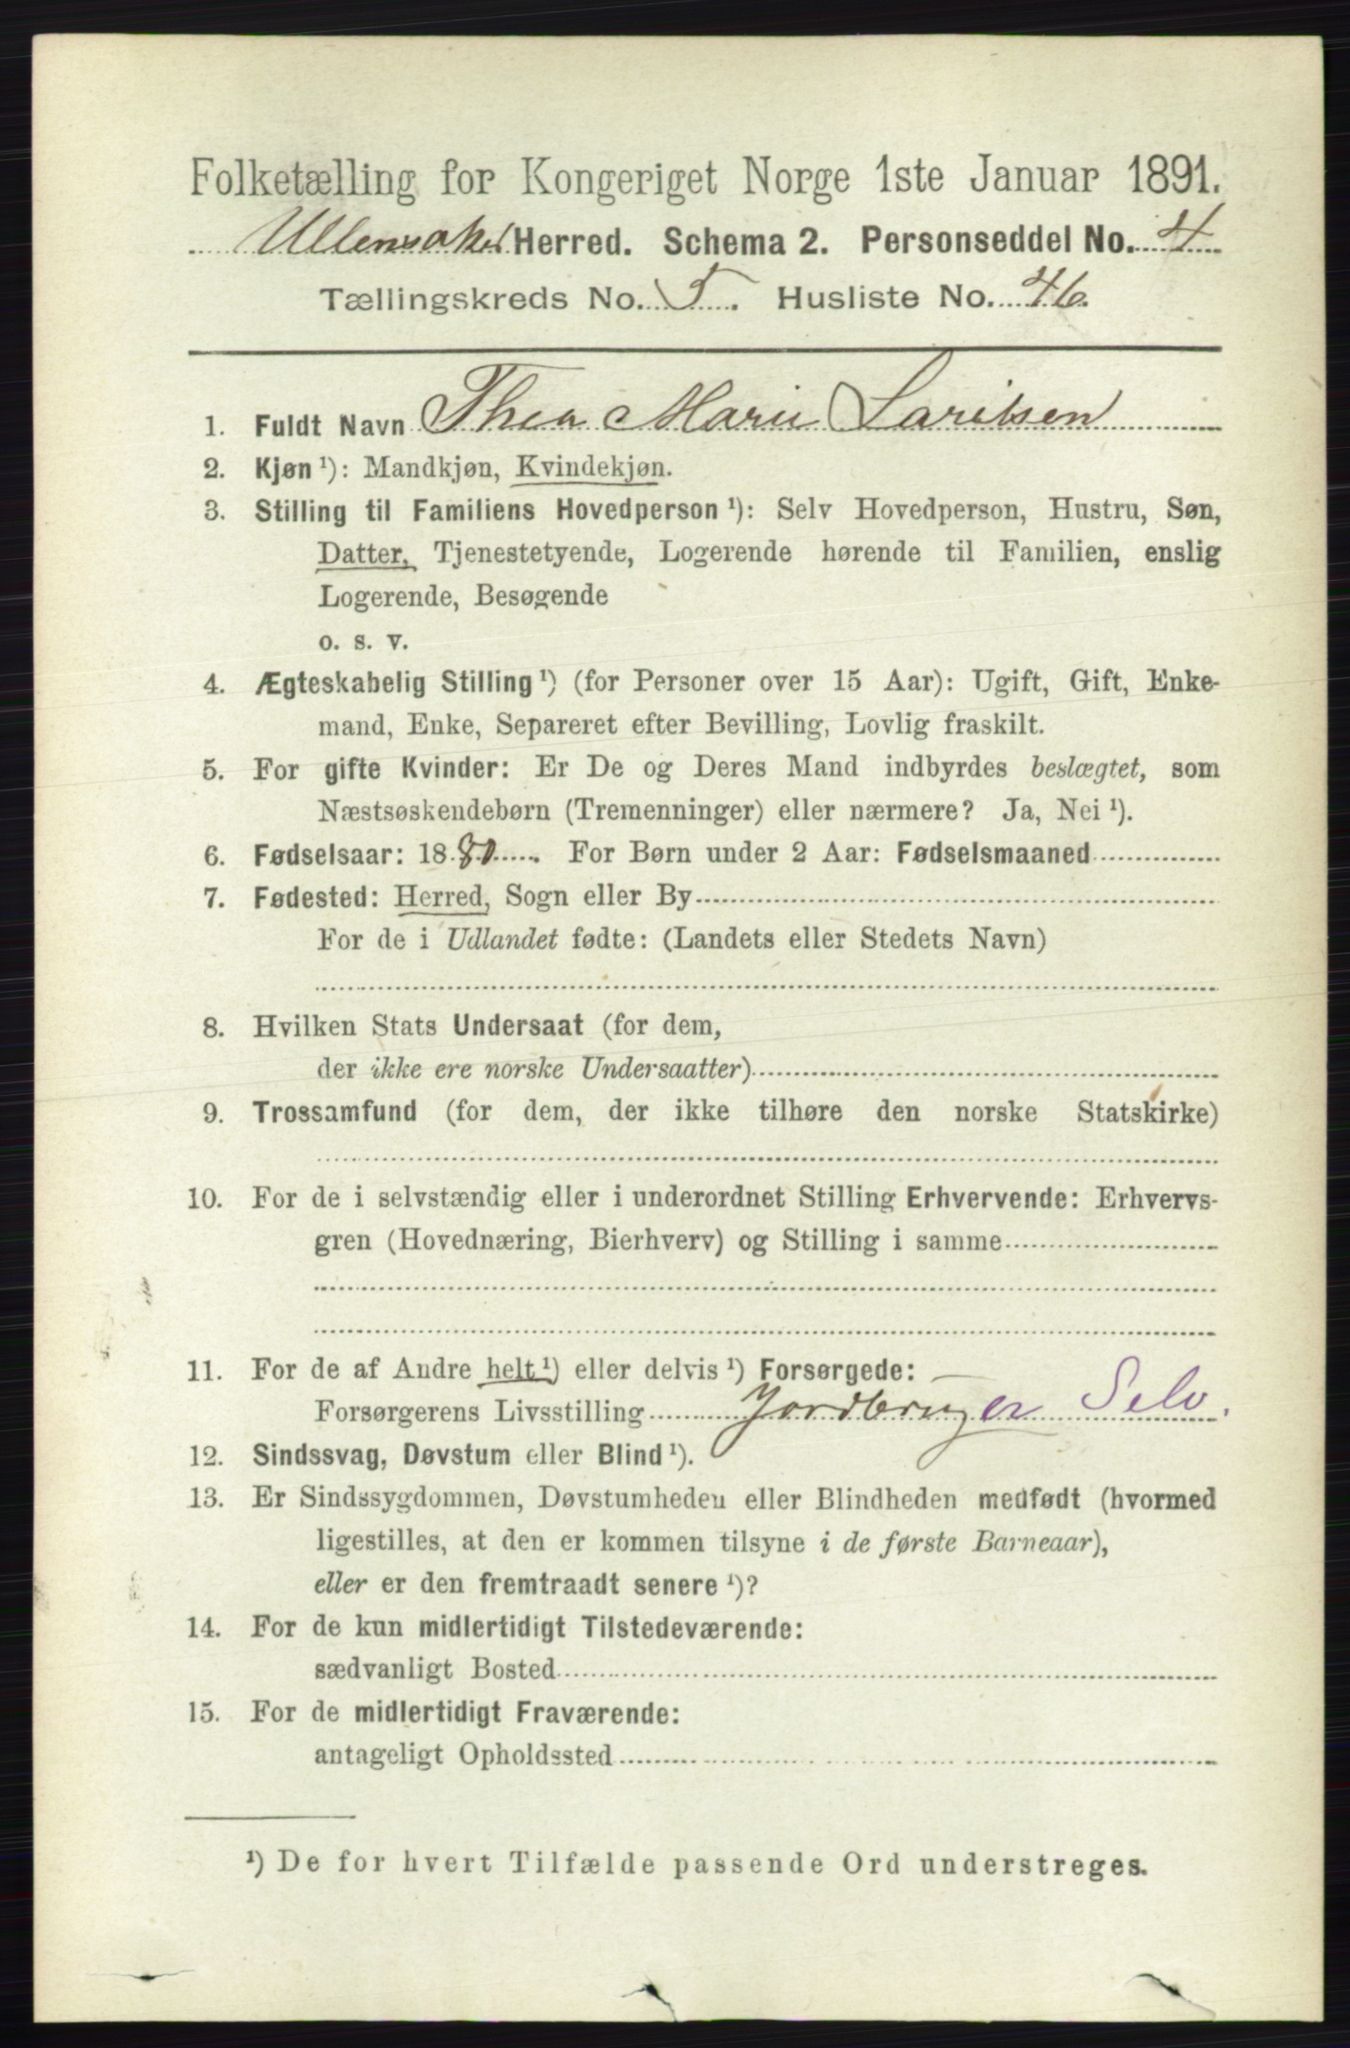 Folketælling for Kongeriget Norge 1ste Januar 1891.
Ullensaker Herred. Schema 2. Personseddel No. 4
Tællingskreds No. 5. Husliste No. 46.
1. Fuldt Navn Thea Marie Laritsen
2. Kjøn ¹): Mandkjøn, Kvindekjøn.
3. Stilling til Familiens Hovedperson ¹): Selv Hovedperson, Hustru, Søn,
Datter, Tjenestetyende, Logerende hørende til Familien, enslig
Logerende, Besøgende
o. s. v.
4. Ægteskabelig Stilling ¹) (for Personer over 15 Aar): Ugift, Gift, Enke-
mand, Enke, Separeret efter Bevilling, Lovlig fraskilt.
5. For gifte Kvinder: Er De og Deres Mand indbyrdes beslægtet, som
Næstsøskendebørn (Tremenninger) eller nærmere? Ja, Nei ¹).
6. Fødselsaar: 1880. For Børn under 2 Aar: Fødselsmaaned
7. Fødested: Herred, Sogn eller By
For de i Udlandet fødte: (Landets eller Stedets Navn)
8. Hvilken Stats Undersaat (for dem,
der ikke ere norske Undersaatter)
9. Trossamfund (for dem, der ikke tilhøre den norske Statskirke)
10. For de i selvstændig eller i underordnet Stilling Erhvervende: Erhvervs-
gren (Hovednæring, Bierhverv) og Stilling i samme
11. For de af Andre helt ¹) eller delvis ¹) Forsørgede:
Forsørgerens Livsstilling Jordbruger Selv.
12. Sindssvag, Døvstum eller Blind ¹).
13. Er Sindssygdommen, Døvstumheden eller Blindheden medfødt (hvormed
ligestilles, at den er kommen tilsyne i de første Barneaar),
eller er den fremtraadt senere ¹)?
14. For de kun midlertidigt Tilstedeværende:
sædvanligt Bosted
15. For de midlertidigt Fraværende:
antageligt Opholdssted
¹) De for hvert Tilfælde passende Ord understreges.